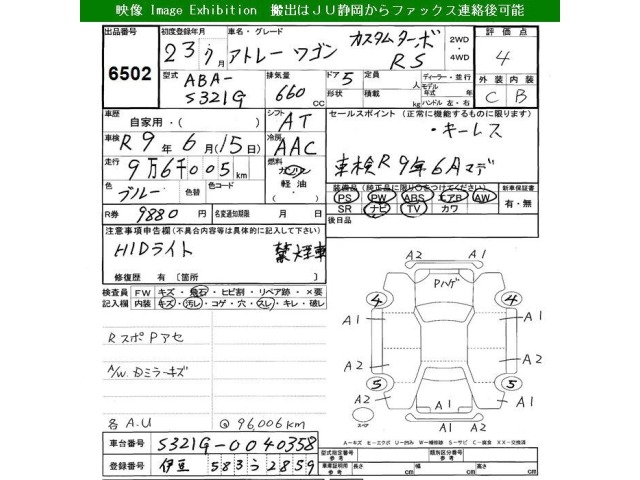 映像 Image Exhibition 搬出はＪＵ静岡からファックス連絡後可能
出品番号 初度登録年月 車名・グレード 2WD・4WD 評価点
6502 23 7月 アトレーワゴン カスタムターボ RS 4
型式 ABA-S321G 排気量 660 CC ドア 5 形状 定員 人 積載 kg ディーラー・並行 モデル年式 年式 ハンドル 左・右 外装 内装
C B
車歴 自家用・( ) シフト AT セールスポイント (正常に機能するものに限ります)
・キーレス
車検 R 9年 6月(15日) 冷房 AAC
車検R9年6月マデ
走行 9万6千005km 燃料 ガソリン 軽油・
色 ブルー 色替 色コード
装備品 (純正品に限り○をつけてください) 新車保証書
PS PW ABS エアB AW 有・無
SR ナビ TV カワ
R券 9880 円 名変通知期限 月 日
後日品
注意事項申告欄(不具合内容等は具体的に記入して下さい)
HIDライト 禁煙車
修復歴 有〔箇所 〕
検査員記入欄 FW キズ・飛石・ヒビ割・リペア跡・×要
内装 キズ・汚レ・コゲ・穴・スレ・キレ・破レ
A2 A1
Pハゲ
4 4
A1 A1
A2 A2
5 5
A1 A2
A1
スペア
Rスポ Pアセ
A/W. Dミラーキズ
各A.U @96,006km
A－キズ E－エクボ U－凹み W－補修跡 S－サビ C－腐食 XX－交換済
車台番号 S321G-0040358
登録番号 伊豆 583う2859
型式指定番号 参考 類別区分番号 参考
車庫証明用 参考 長さ cm 幅 cm 高さ cm